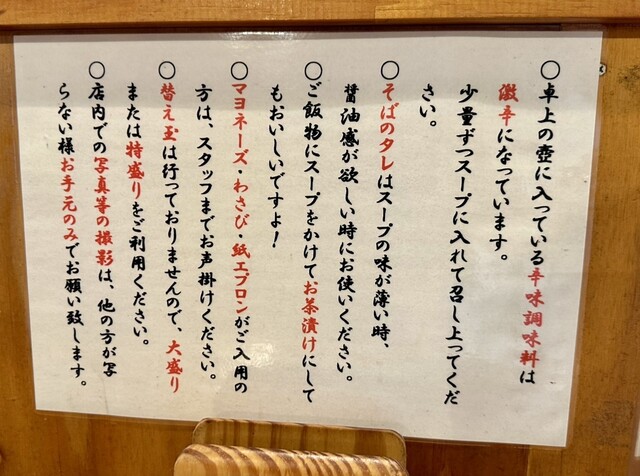 〇卓上の壺に入っている辛味調味料は
激辛になっています。
少量ずつスープに入れて召し上ってくだ
さい。
〇そばのタレはスープの味が薄い時、
醤油感が欲しい時にお使いください。
〇ご飯物にスープをかけてお茶漬けにして
もおいしいですよ！
〇マヨネーズ・わさび・紙エプロンがご入用の
方は、スタッフまでお声掛けください。
〇替え玉は行っておりませんので、大盛り
または特盛りをご利用ください。
〇店内での写真等の撮影は、他の方が写
らない様お手元のみでお願い致します。